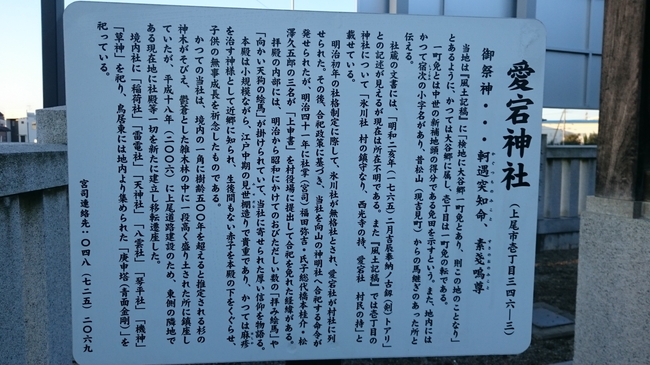 愛宕神社
（上尾市壱丁目三四六―三）
御祭神・・・軻遇突知命、素戔嗚尊
当地は『風土記稿』に「検地に大谷郷一町免とあり、則この地のことなり」
とあるように、かつては大谷郷に属し、壱丁目は一町免の転である。
一町免とは中世の新補地頭の得分である免田を示すという。また、地内には
かつて宿次の小字名があり、昔松山（現吉見町）からの馬継ぎのあった所と
伝える。
社蔵の文書には、「明和二亥年（一七六五）二月吉辰奉納ノ古鉾（剣）トアリ」
との記述が見えるが現在は所在不明である。また『風土記稿』では壱丁目の
神社について「氷川社　村の鎮守なり、西光寺の持、愛宕社　村民の持」と
載せている。
明治初年の社格制定に際して、氷川社が無格社とされ、愛宕社が村社に列
せられた。その後、合祀政策に基づき、当社を向山の神明社へ合祀する命令が
発せられたが、明治四十一年に社掌（宮司）福田弥吉・氏子総代橋本桂介・松
澤久五郎の三名が「上申書」を村役場に提出して合祀を免れた経緯がある。
拝殿の内部には、明治から昭和にかけてのおびただしい数の「拝み絵馬」や
「向かい天狗の絵馬」が掛けられていて、当社に寄せられた厚い信仰を物語る。
本殿は小規模ながら、江戸中期の見世棚造りで貴重であり、かつては麻疹
を治す神様として近郷に知られ、生後間もない赤子を本殿の下をくぐらせ、
子供の無事成長を祈念したものである。
かつての当社は、境内の一角に樹齢五〇〇年を超えると推定される杉の
神木がそびえ、鬱蒼とした雑木林の中に一段高く盛り土された所に鎮座し
ていたが、平成十八年（二〇〇六）に上尾道路建設のため、東側の隣地で
ある現在地に社殿等一切を新たに建立し移転遷座した。
境内社に「稲荷社」「雷電社」「天神社」「八雲社」「琴平社」「機神」
「草神」を祀り、鳥居東には地内より集められた「庚申塔（青面金剛）」を
祀っている。
宮司連絡先・〇四八（七二五）二〇六九